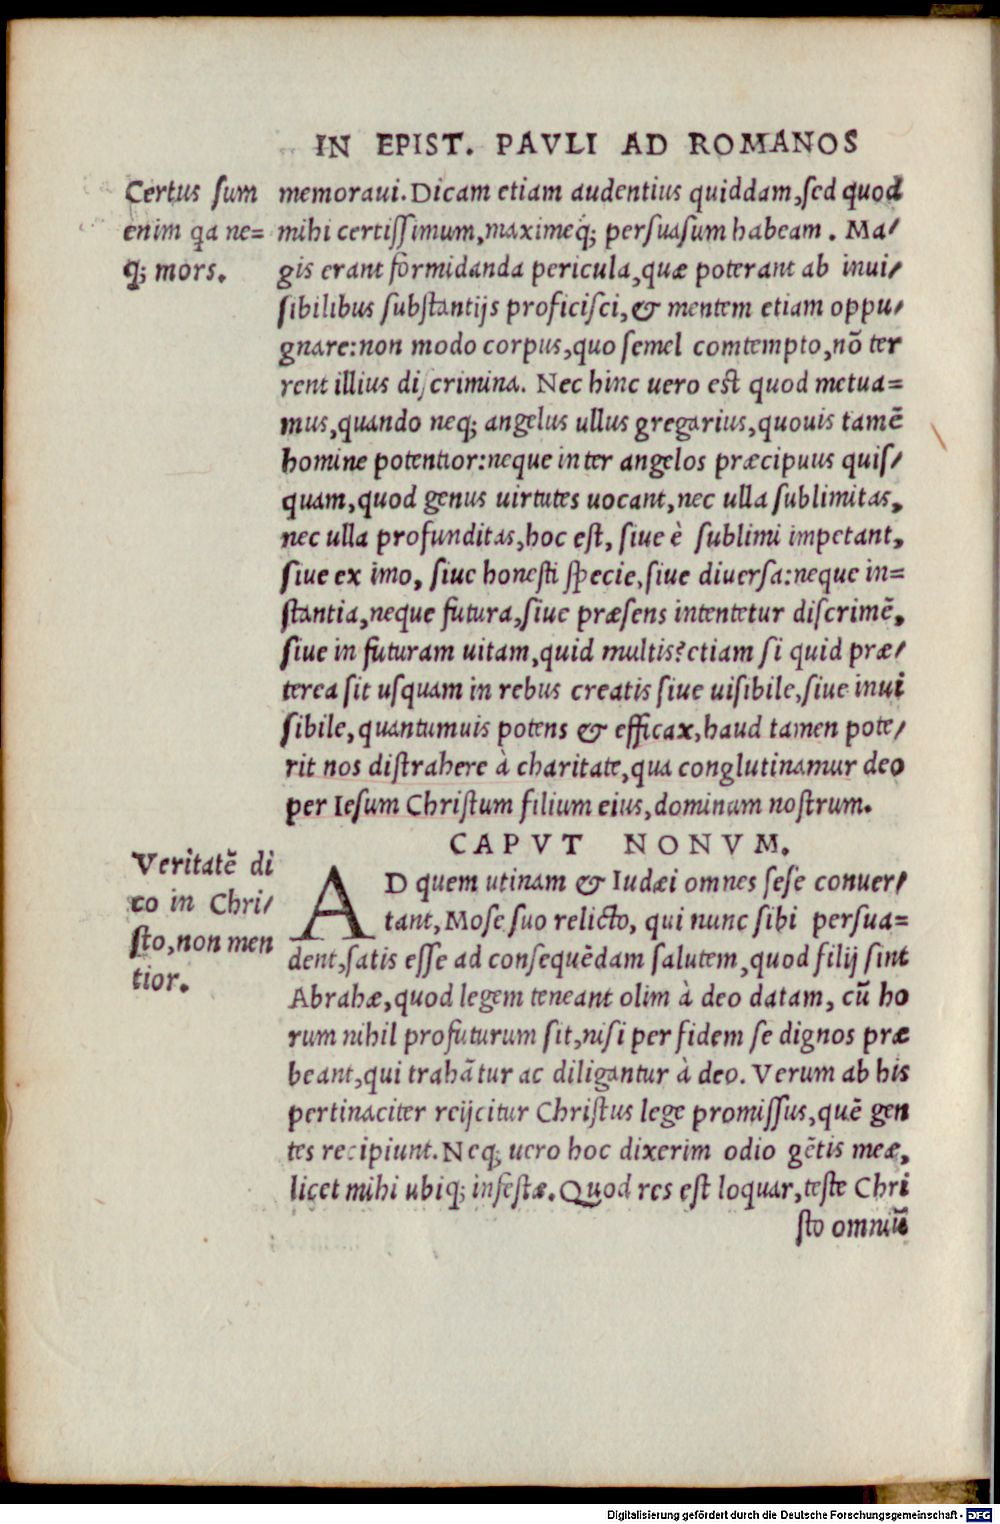 IN EPIST. PAVLI AD ROMANOS
Certus ſum
enim qa ne=
q; mors.
memoraui. Dicam etiam audentius quiddam, ſed quod
mihi certiſſimum, maximeq́; perſuaſum habeam. Ma/
gis erant formidanda pericula, quæ poterant ab inui/
ſibilibus ſubſtantijs proficiſci, & mentem etiam oppu/
gnare: non modo corpus, quo ſemel comtempto, nō ter
rent illius diſcrimina. Nec hinc uero eſt quod metua=
mus, quando neq; angelus ullus gregarius, quouis tamē
homine potentior: neque inter angelos præcipuus quiſ/
quam, quod genus uirtutes uocant, nec ulla ſublimitas,
nec ulla profunditas, hoc eſt, ſiue è ſublimi impetant,
ſiue ex imo, ſiue honeſti ſpecie, ſiue diuerſa: neque in=
ſtantia, neque futura, ſiue præſens intentetur diſcrimē,
ſiue in futuram uitam, quid multis? etiam ſi quid præ/
terea ſit uſquam in rebus creatis ſiue uiſibile, ſiue inui
ſibile, quantumuis potens & efficax, haud tamen pote/
rit nos diſtrahere à charitate, qua conglutinamur deo
per Ieſum Chriſtum filium eius, dominum noſtrum.
CAPVT NONVM.
Veritatē di
co in Chri/
ſto, non men
tior.
AD quem utinam & Iudæi omnes ſeſe conuer/
tant, Moſe ſuo relicto, qui nunc ſibi perſua=
dent, ſatis eſſe ad conſequēdam ſalutem, quod filij ſint
Abrahæ, quod legem teneant olim à deo datam, cū ho
rum nihil profuturum ſit, niſi per fidem ſe dignos præ
beant, qui trahātur ac diligantur à deo. Verum ab his
pertinaciter reijcitur Chriſtus lege promiſſus, quē gen
tes recipiunt. Neq; uero hoc dixerim odio gētis meæ,
licet mihi ubiq; infeſtæ. Quod res eſt loquar, teſte Chri
ſto omniū
Digitalisierung gefördert durch die Deutsche Forschungsgemeinschaft - DFG